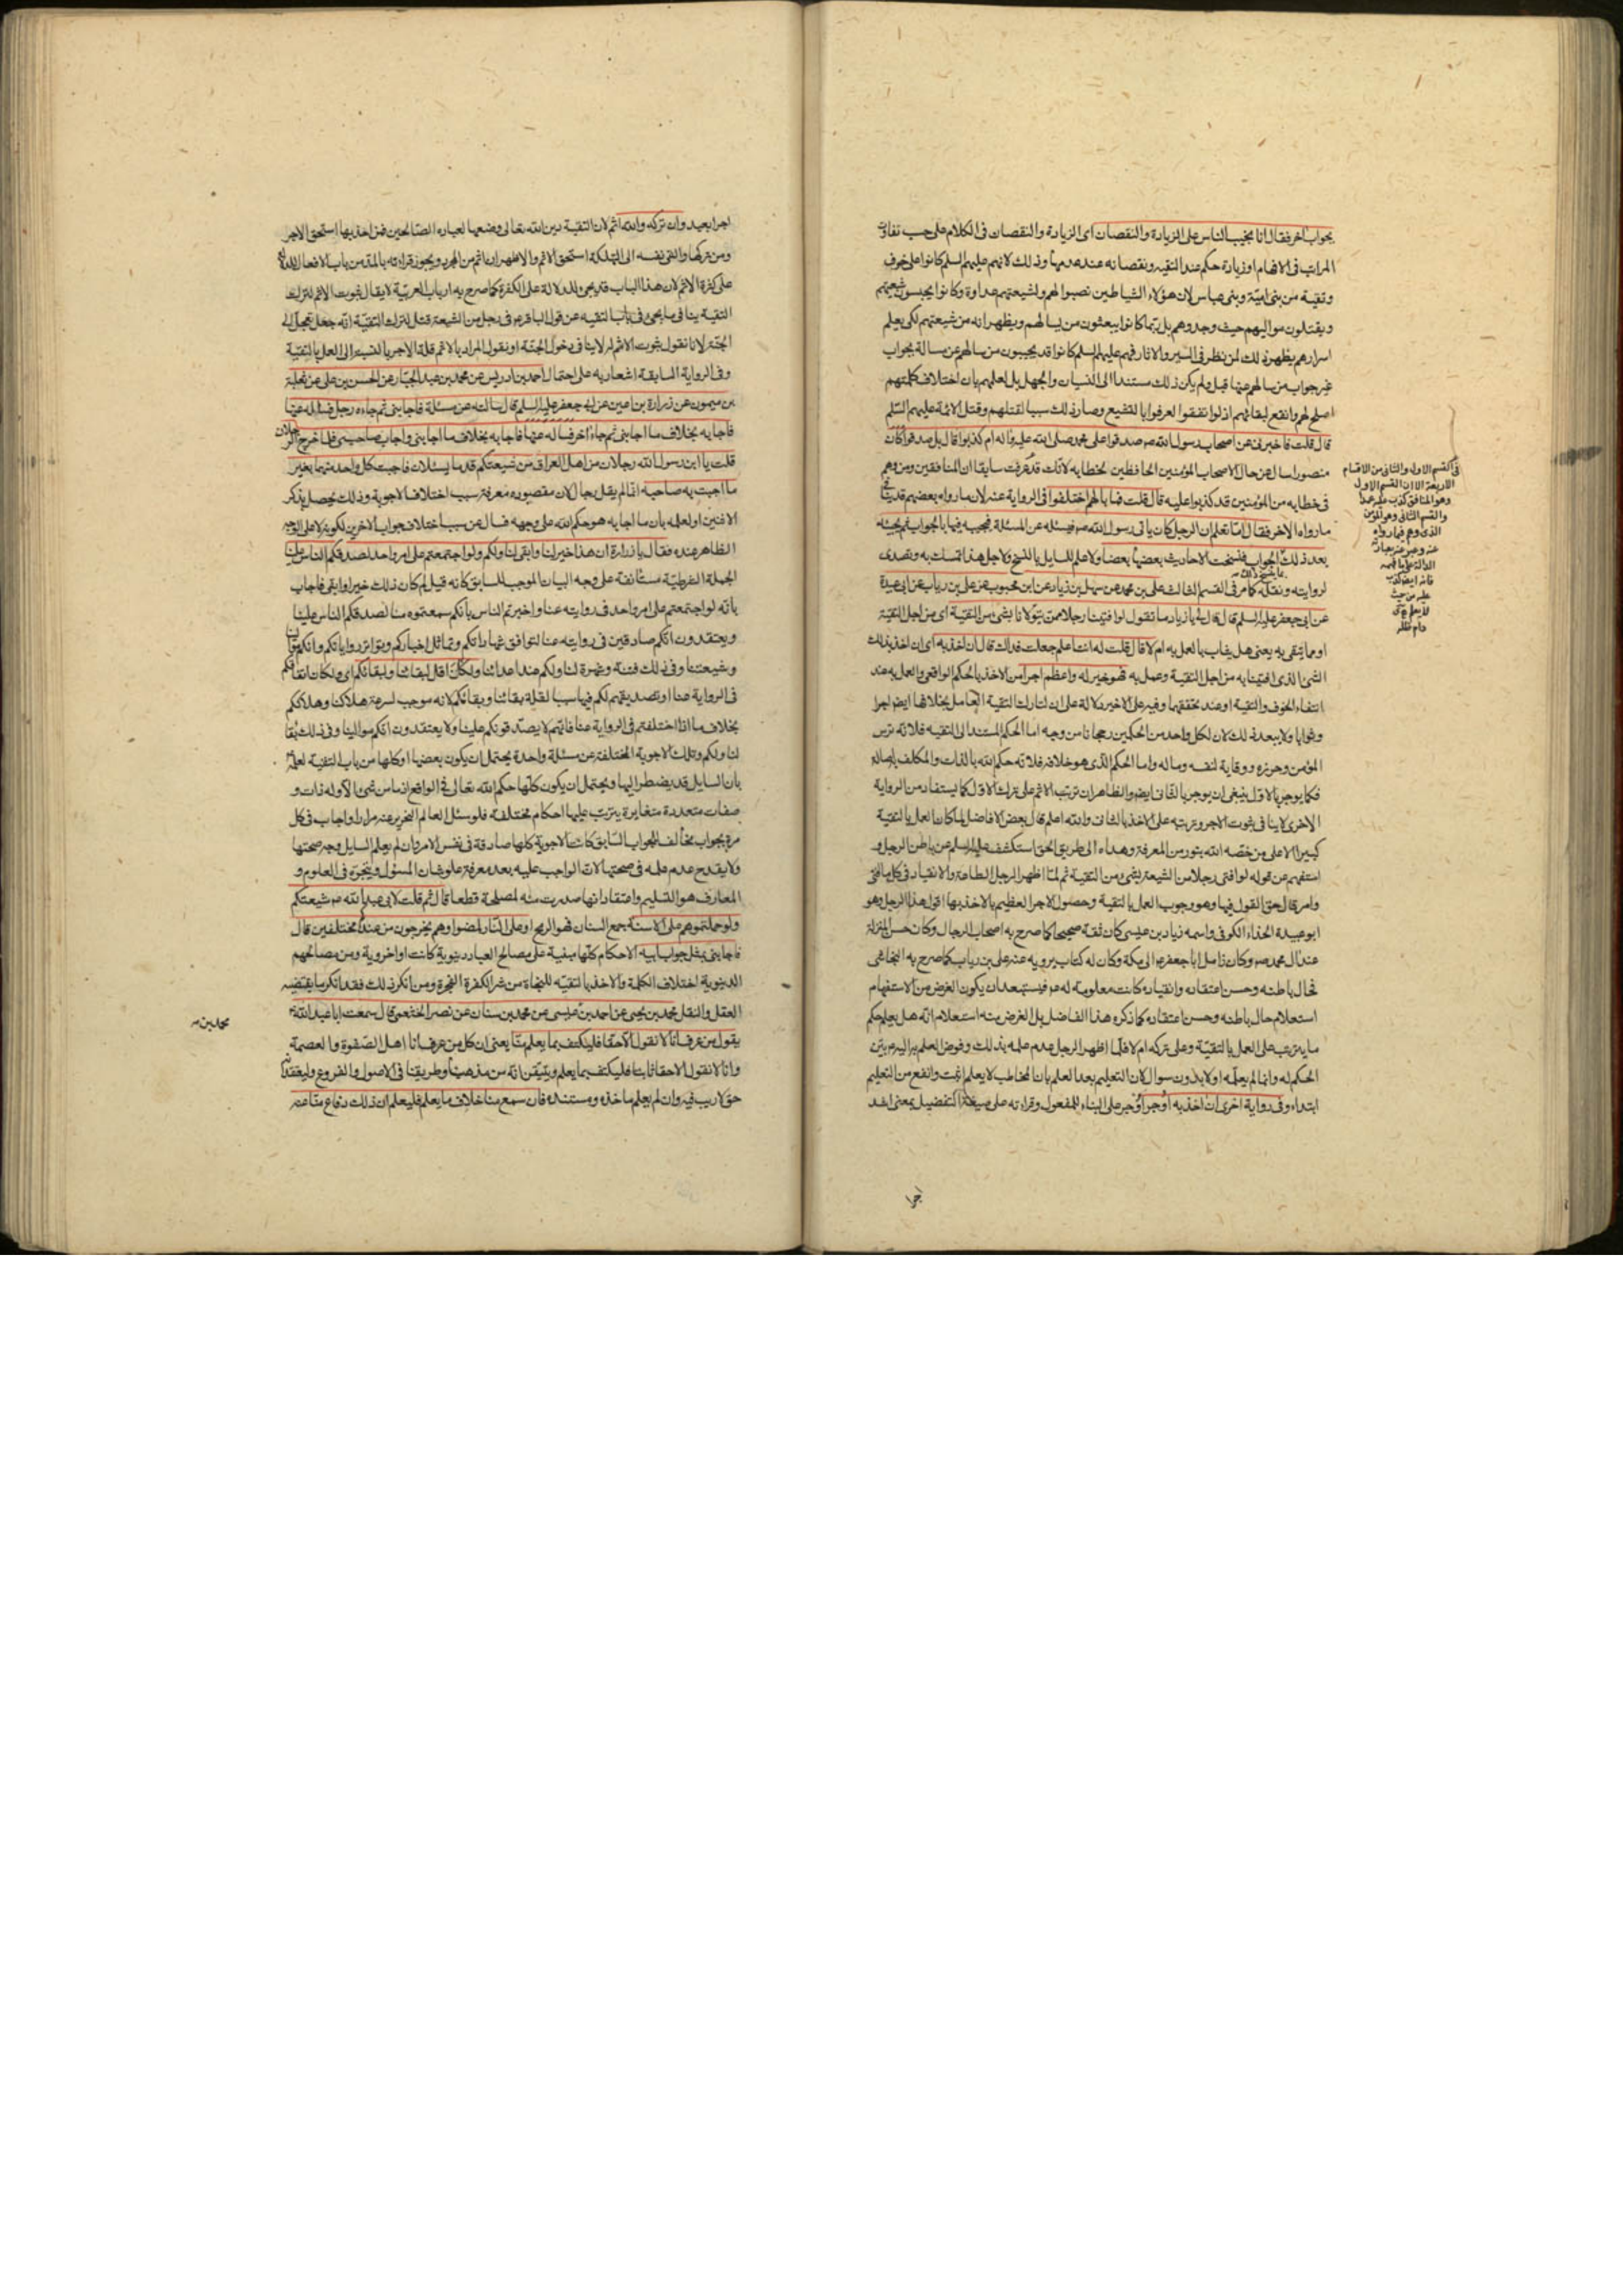 بجواب آخر فقال انا نجيب الناس على الزيادة والنقصان اى الزيادة والنقصان فى الكلام على حسب تفاوت
المراتب فى الافهام او زيادة حكم عند التقية ونقصانه عند عدمها وذلك لانهم عليهم السلم كانوا على خوف
وتقية من بنى امية وبنى عباس لان هؤلاء الشياطين نصبوا لهم ولشيعتهم عداوة وكانوا يحبسون شيعتهم
ويقتلون مواليهم حيث وجدوهم بل ربما كانوا يبعثون من يسالهم ويظهر انه من شيعتهم لكى يعلم
اسرارهم يظهر ذلك لمن نظر فى السير والاثار فهم عليهم السلم كانوا قد يجيبون من سالهم عن مسالة بجواب
غير جواب من سالهم عنها قبل ولم يكن ذلك مستندا الى النسيان والجهل بل لعلمهم بان اختلاف كلمتهم
اصلح لهم وانفع لبقائهم اذ لو اتفقوا لعرفوا بالتشيع وصار ذلك سببا لقتلهم وقتل الائمة عليهم السلم
قال قلت فاخبرنى عن اصحاب رسول الله ص صدقوا على محمد صلى الله عليه واله ام كذبوا قال بل صدقوا كان
منصورا سال عن حال الاصحاب المؤمنين الحافظين لخطابه لانك قد عرفت سابقا ان المنافقين ومن وهم
فى خطابه من المؤمنين قد كذبوا عليه قال قلت فما بالهم اختلفوا فى الرواية عنه لان ما رواه بعضهم قد ينافى
ما رواه الاخر فقال اما تعلم ان الرجل كان ياتى رسول الله ص فيسئله عن المسئلة فيجيبه فيها بالجواب ثم يجيبه
بعد ذلك ما ينسخ ذلك الجواب فنسخت الاحاديث بعضها بعضا ولا علم للسايل بالنسخ ولاجل هذا تمسك به وتصدى
لروايته ونقله كما مر فى القسم الثالث على بن محمد عن سهل بن زياد عن ابن محبوب عن على بن رياب عن ابى عبيدة
عن ابى جعفر عليه السلم قال قال لى يا زياد ما تقول لو افتينا رجلا ممن يتولانا بشئ من التقية اى من اجل التقية
او مما يتقى به يعنى هل يثاب بالعمل به ام لا قال قلت له انت اعلم جعلت فداك قال ان اخذ به اى ان اخذ بذلك
الشئ الذى افتيناه به من اجل التقية وعمل به فهو خير له واعظم اجرا من الاخذ بالحكم الواقعى والعمل به عند
انتفاء الخوف والتقية او عند تحققهما وفيه على الاخير دلالة على ان لتارك التقية العامل بخلافها ايضا اجرا
وثوابا ولا يبعد ذلك لان لكل واحد من الحكمين رجحانا من وجه اما الحكم المستند الى التقية فلانه ترس
المؤمن وحرزه ووقاية لنفسه وماله واما الحكم الذى هو خلافه فلانه حكم الله بالذات والمكلف به اصالة
فكما يوجر بالاول ينبغى ان يوجر بالثانى ايضا والظاهر ان ترتب الاثم على ترك الاول كما يستفاد من الرواية
الاخرى لا ينافى ثبوت الاجر وترتبه على الاخذ بالثانى والله اعلم قال بعض الافاضل لما كان العمل بالتقية
كبيرا الا على من خصه الله بنور من المعرفة وهداه الى طريق الحق استكشف عليه السلم عن باطن الرجل و
استفهم عن قوله لو افتى رجلا من الشيعة بشئ من التقية ثم لما اظهر الرجل الطاعة والانقياد فى كل ما افتى
وامر قال حق القول فيها وهو وجوب العمل بالتقية وحصول الاجر العظيم بالاخذ بها اقول هذا الرجل وهو
ابو عبيدة الحذاء الكوفى واسمه زياد بن عيسى كان ثقة صحيحا كما صرح به اصحاب الرجال وكان حسن المنزلة
عند ال محمد ص وكان زامل ابا جعفر ع الى مكة وكان له كتاب يرويه عنه على بن رياب كما صرح به النجاشى
فحال باطنه وحسن اعتقاده وانقياده كانت معلومة له ع فيستبعد ان يكون الغرض من الاستفهام
استعلام حال باطنه وحسن اعتقاده كما ذكره هذا الفاضل بل الغرض منه استعلام انه هل يعلم حكم
ما يترتب على العمل بالتقية وعلى تركه ام لا فلما اظهر الرجل عدم علمه بذلك وفوض العلم به اليه ع بين
الحكم له وانما لم يعلمه اولا بدون سوال لان التعليم بعد العلم بان المخاطب لا يعلم اثبت وانفع من التعليم
ابتداء وفى رواية اخرى ان اخذ به اوجر اوجر على البناء للمفعول وقراءته على صيغة التفضيل بمعنى اشد
اجرا
فى القسم الاول والثانى من الاقسام
الاربعة الا ان القسم الاول
وهو المنافق كذب عليه عمدا
والقسم الثانى وهو المؤمن
الذى وهم فيما رواه
عنه وعبر عنه بعبارة
الدالة على ما فهمه
فانه ايضا كذب
عليه من حيث
لا يعلم
دام ظله
اجرا بعيد وان تركه والله اثم لان التقية دين الله تعالى وضعها لعباده الصالحين فمن اخذ بها استحق الاجر
ومن تركها والقى نفسه الى التهلكة استحق الاثم والاظهر ان اثم من المجرد ويجوز قراءته بالمد من باب الافعال للدلالة
على كثرة الاثم لان هذا الباب قد يجئ للدلالة على الكثرة كما صرح به ارباب العربية لا يقال ثبوت الاثم لترك
التقية ينافى ما يجئ فى باب التقية عن قول الباقر ع فى رجل من الشيعة قتل لترك التقية انه جعل تعجل الى
الجنة لانا نقول ثبوت الاثم له لا ينافى دخول الجنة او نقول المراد بالاثم قلة الاجر بالنسبة الى العمل بالتقية
وفى الرواية السابقة اشعار به على احتمال احمد بن ادريس عن محمد بن عبد الجبار عن الحسن بن على عن ثعلبة
بن ميمون عن زرارة بن اعين عن ابى جعفر عليه السلم قال سالته عن مسئلة فاجابنى ثم جاءه رجل فساله عنها
فاجابه بخلاف ما اجابنى ثم جاء اخر فساله عنها فاجابه بخلاف ما اجابنى واجاب صاحبى فلما خرج الرجلان
قلت يا ابن رسول الله رجلان من اهل العراق من شيعتكم قدما يسئلان فاجبت كل واحد منهما بغير
ما اجبت به صاحبه انما لم يقل رجال لان مقصوده معرفة سبب اختلاف الاجوبة وذلك يحصل بذكر
الاثنين او لعلمه بان ما اجابه هو حكم الله على وجهه فسال عن سبب اختلاف جواب الاخرين لكونه لا على الوجه
الظاهر عنده فقال يا زرارة ان هذا خير لنا وابقى لنا ولكم ولو اجتمعتم على امر واحد لصدقكم الناس علينا
الجملة الشرطية مستانفة على وجه البيان الموجب للسابق كانه قيل لم كان ذلك خيرا وابقى فاجاب
بانه لو اجتمعتم على امر واحد فى روايته عنا واخبرتم الناس بانكم سمعتموه منا لصدقكم الناس علينا
ويعتقدون انكم صادقين فى روايته عنا لتوافق شهاداتكم وتماثل اخباركم وتواتر رواياتكم وانكم موالينا
وشيعتنا وفى ذلك فتنة وشهرة لنا ولكم عند اعدائنا ولكان اقل لبقائنا ولبقائكم اى ولكان اتفاقكم
فى الرواية عنا او تصديقهم لكم فيها سببا لقلة بقائنا وبقائكم لانه موجب لسرعة هلاكنا وهلاككم
بخلاف ما اذا اختلفتم فى الرواية عنا فانهم لا يصدقونكم علينا ولا يعتقدون انكم موالينا وفى ذلك بقاء
لنا ولكم وتلك الاجوبة المختلفة عن مسئلة واحدة يحتمل ان يكون بعضها او كلها من باب التقية لعلمه
بان السايل قد يضطر اليها ويحتمل ان يكون كلها حكم الله تعالى فى الواقع اذ ما من شئ الا وله ذات و
صفات متعددة متغايرة يترتب عليها احكام مختلفة فلو سئل العالم النحرير عنه مرارا واجاب فى كل
مرة بجواب مخالف للجواب السابق كانت الاجوبة كلها صادقة فى نفس الامر وان لم يعلم السايل وجه صحتها
ولا يقدح عدم علمه فى صحتها لان الواجب عليه بعد معرفة علو شان المسئول وتبحره فى العلوم و
المعارف هو التسليم واعتقاد انها صدرت منه لمصلحة قطعا قال ثم قلت لابى عبد الله ع شيعتكم
ولو حملتموهم على الاسنة جمع السنان فهو الرمح او على النار لمضوا وهم يخرجون من عندكم مختلفين قال
فاجابنى بمثل جواب ابيه الاحكام كلها مبنية على مصالح العباد دينوية كانت او اخروية ومن مصالحهم
الدينوية اختلاف الكلمة والاخذ بالتقية للنجاة من شر الكفرة الفجرة ومن انكر ذلك فقد انكر ما يقتضيه
العقل والنقل محمد بن يحيى عن احمد بن محمد بن عيسى عن محمد بن سنان عن نصر الخثعمى قال سمعت ابا عبد الله ع
يقول من عرف انا لا نقول الا حقا فليكتف بما يعلم منا يعنى ان كل من عرف انا اهل الصفوة والعصمة
وانا لا نقول الا حقا ثابتا فليكتف بما يعلم ويتيقن انه من مذهبنا وطريقنا فى الاصول والفروع وليعتقد انه
حق لا ريب فيه وان لم يعلم ماخذه ومستنده فان سمع منا خلاف ما يعلم فليعلم ان ذلك دفاع منا عنه
محمد بن